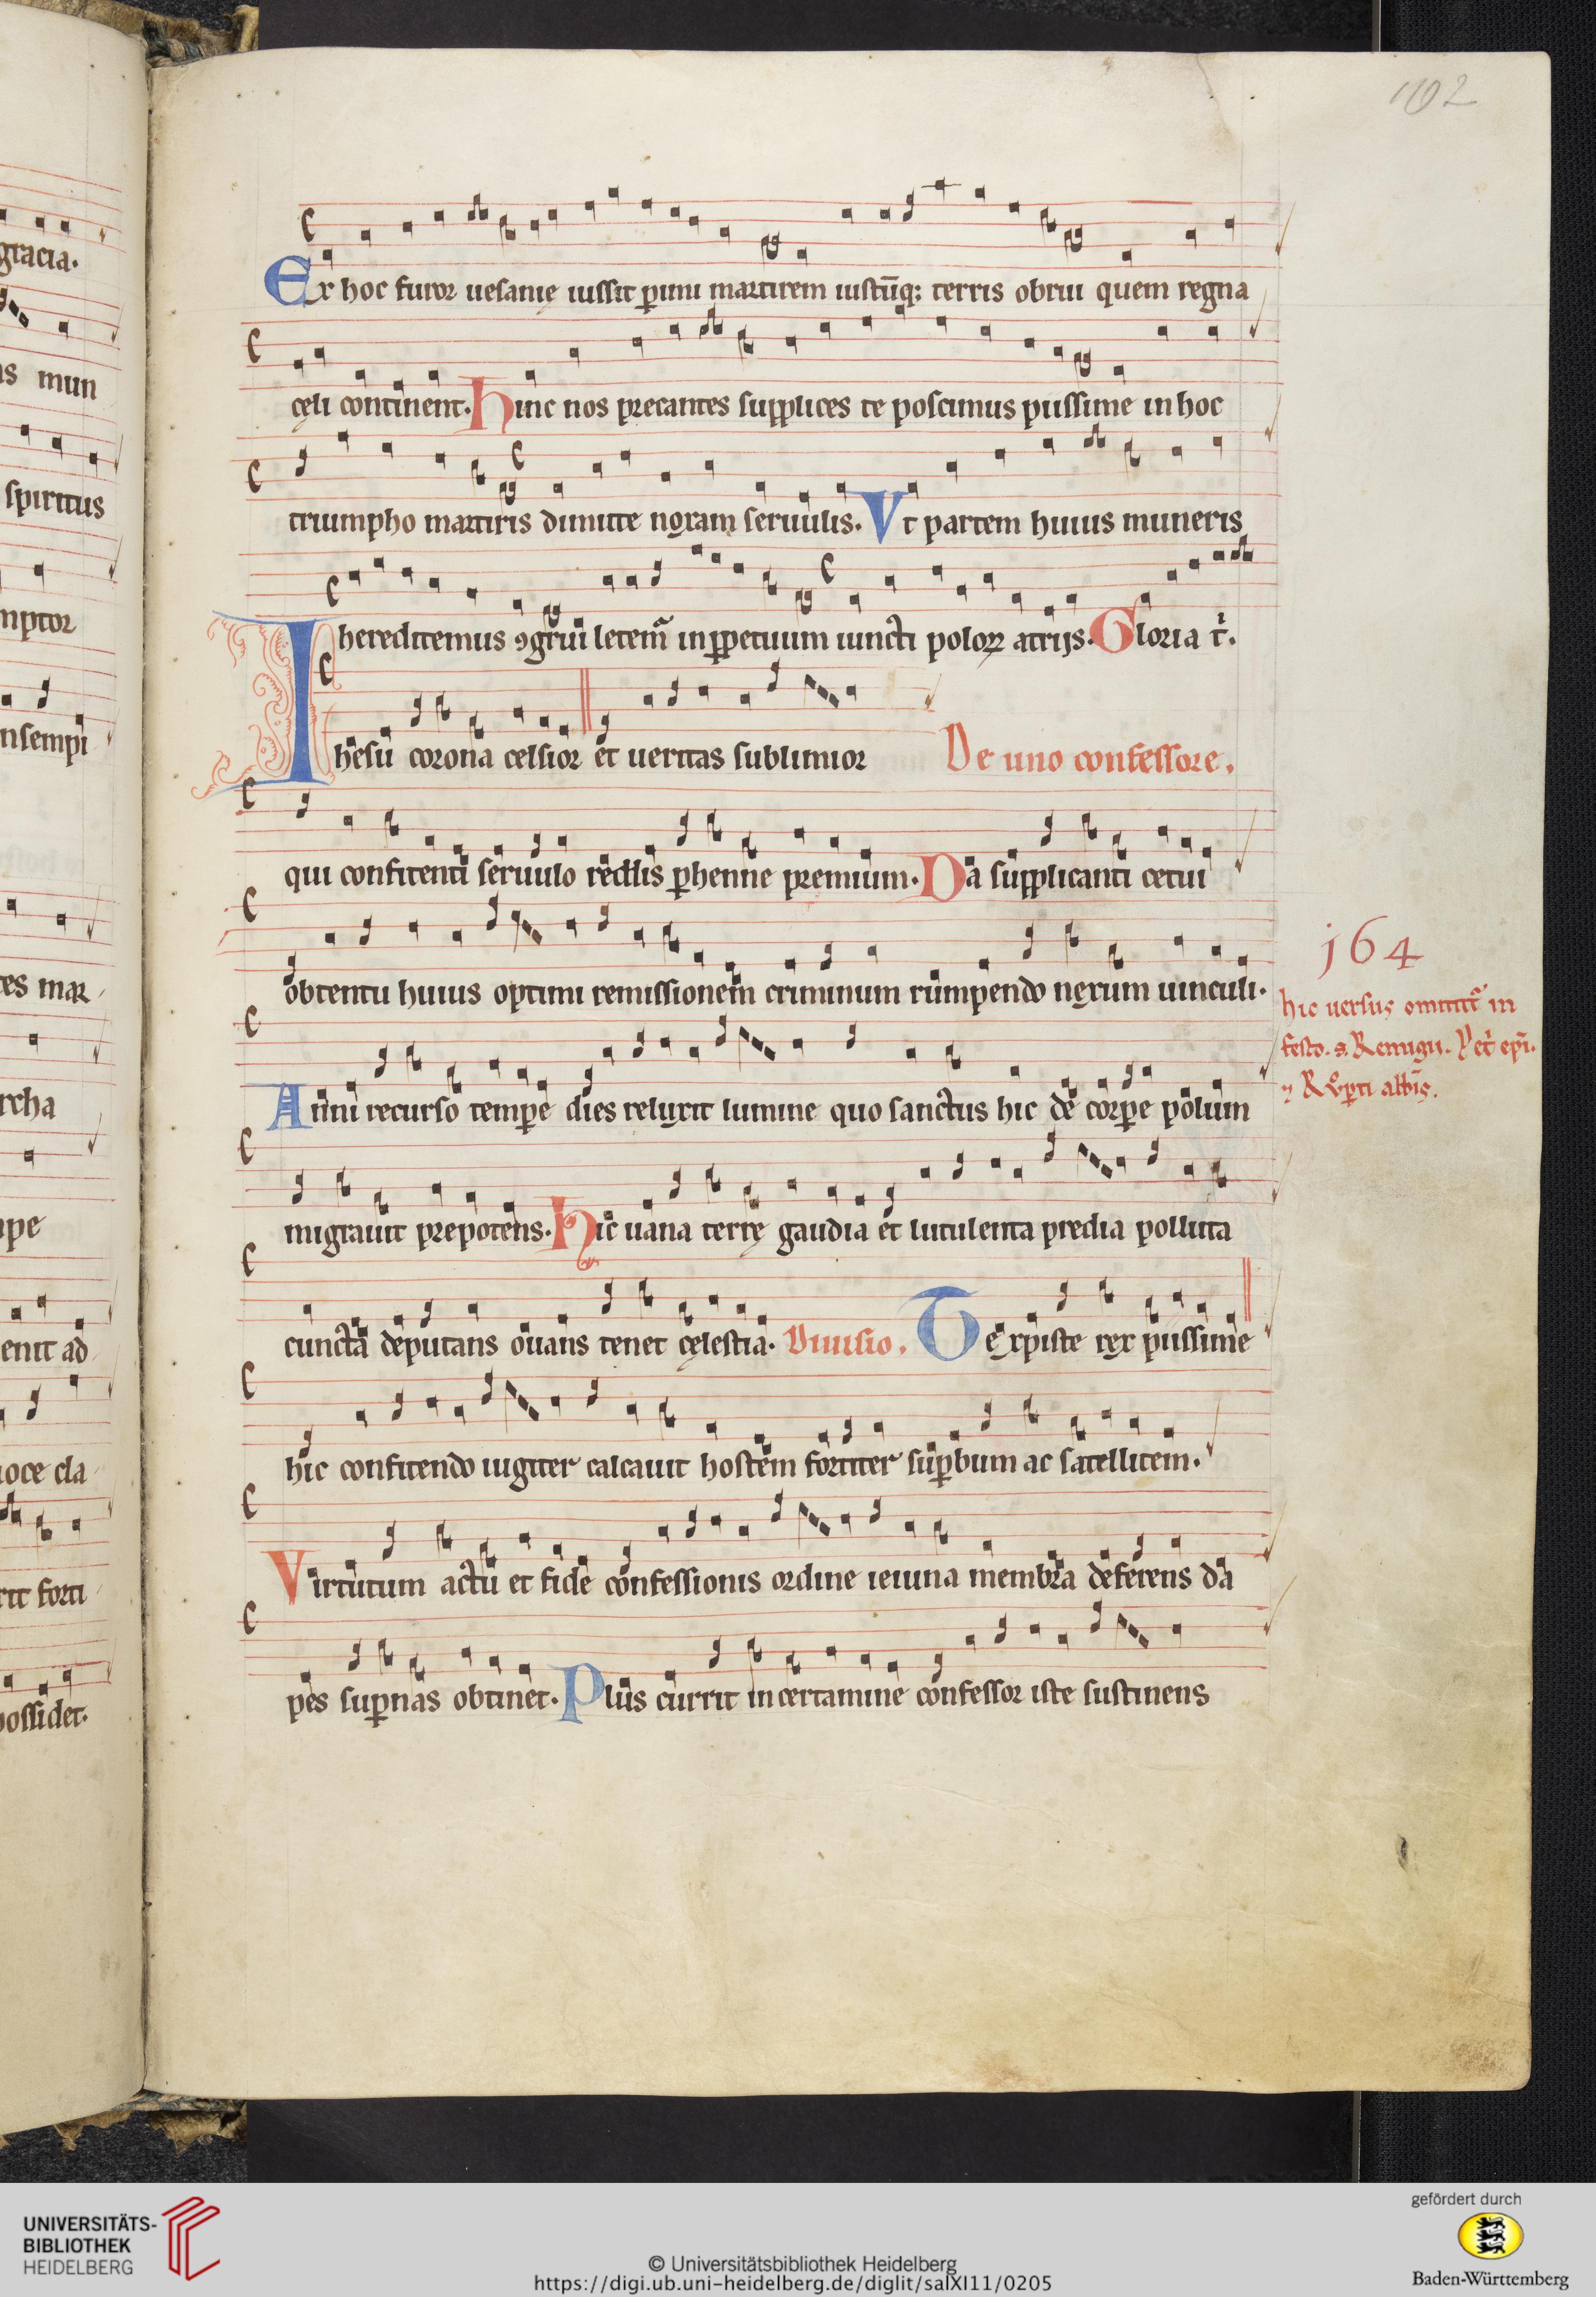 102
Ex hoc furor uesanię iussit p̱imi martirem iustūq; terris obrui quem regna
cęli continent. Hinc nos precantes supplices te poscimus piissime in hoc
triumpho martiris dimitte noxam seruulis. Vt partem huius muneris
hereditemus ꝯgrui letem̃ in ꝑpetuum iuncti poloꝝ atrijs. Gloria t̓.
Ihesu corona celsior et ueritas sublimior De uno confessore.
qui confitenti seruulo reddis ꝑhenne premium. Da supplicanti cetui
obtentu huius optimi remissionem criminum rumpendo nexum uinculi.
164
hic uersus omittit᷑ in
festo. s. Remigii.
Anni recurso tempe dies reluxit lumine quo sanctus hic de corpe polum
migrauit prepotens. Hic uana terrę gaudia et luculenta predia polluta
cuncta deputans ouans tenet cęlestia. Diuisio. Te xpiste rex piissime
hic confitendo iugiter calcauit hostem fortiter suꝑbum ac satellitem.
Virtutum actu et fide confessionis ordine ieiuna membra deferens da
pes suꝑnas obtinet. Plus currit in certamine confessor iste sustinens
gracia.
as mun
spiritus
mptor
nsempi
tes mar
rcha
ipe
enit ad
uoce cla
rit forti
possidet.
UNIVERSITÄTS-
BIBLIOTHEK
HEIDELBERG
© Universitätsbibliothek Heidelberg
https://digi.ub.uni-heidelberg.de/diglit/salXI11/0205
gefördert durch
Baden-Württemberg